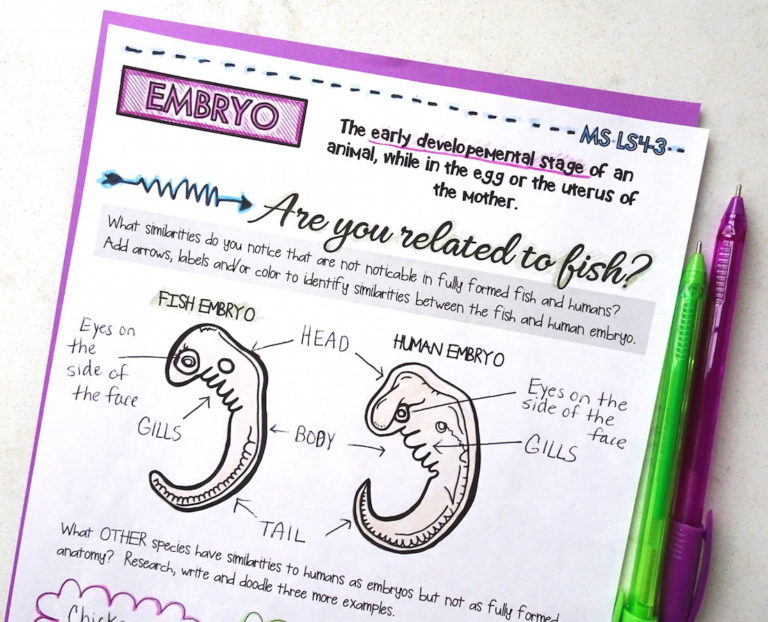 EMBRYO
MS-LS4-3
The early developemental stage of an
animal, while in the egg or the uterus of
the Mother.
Are you related to fish?
What similarities do you notice that are not noticable in fully formed fish and humans?
Add arrows, labels and/or color to identify similarities between the fish and human embryo.
FISH EMBRYO
HEAD
HUMAN EMBRYO
Eyes on
the
side of
the face
Eyes on the
side of the
face
GILLS
BODY
GILLS
TAIL
What OTHER species have similarities to humans as embryos but not as fully formed
anatomy? Research, write and doodle three more examples.